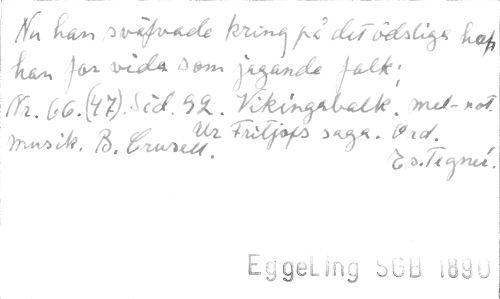 Nu han sväfvade kring på det ödsliga haf
han for vida som jagande falk;
Nr. 66. (47). Sid. 92. Vikingabalk. mel-not.
Ur Fritjofs saga. Ord.
musik. B. Crusell.
Es. Tegnér.
Eggeling SGB 1890